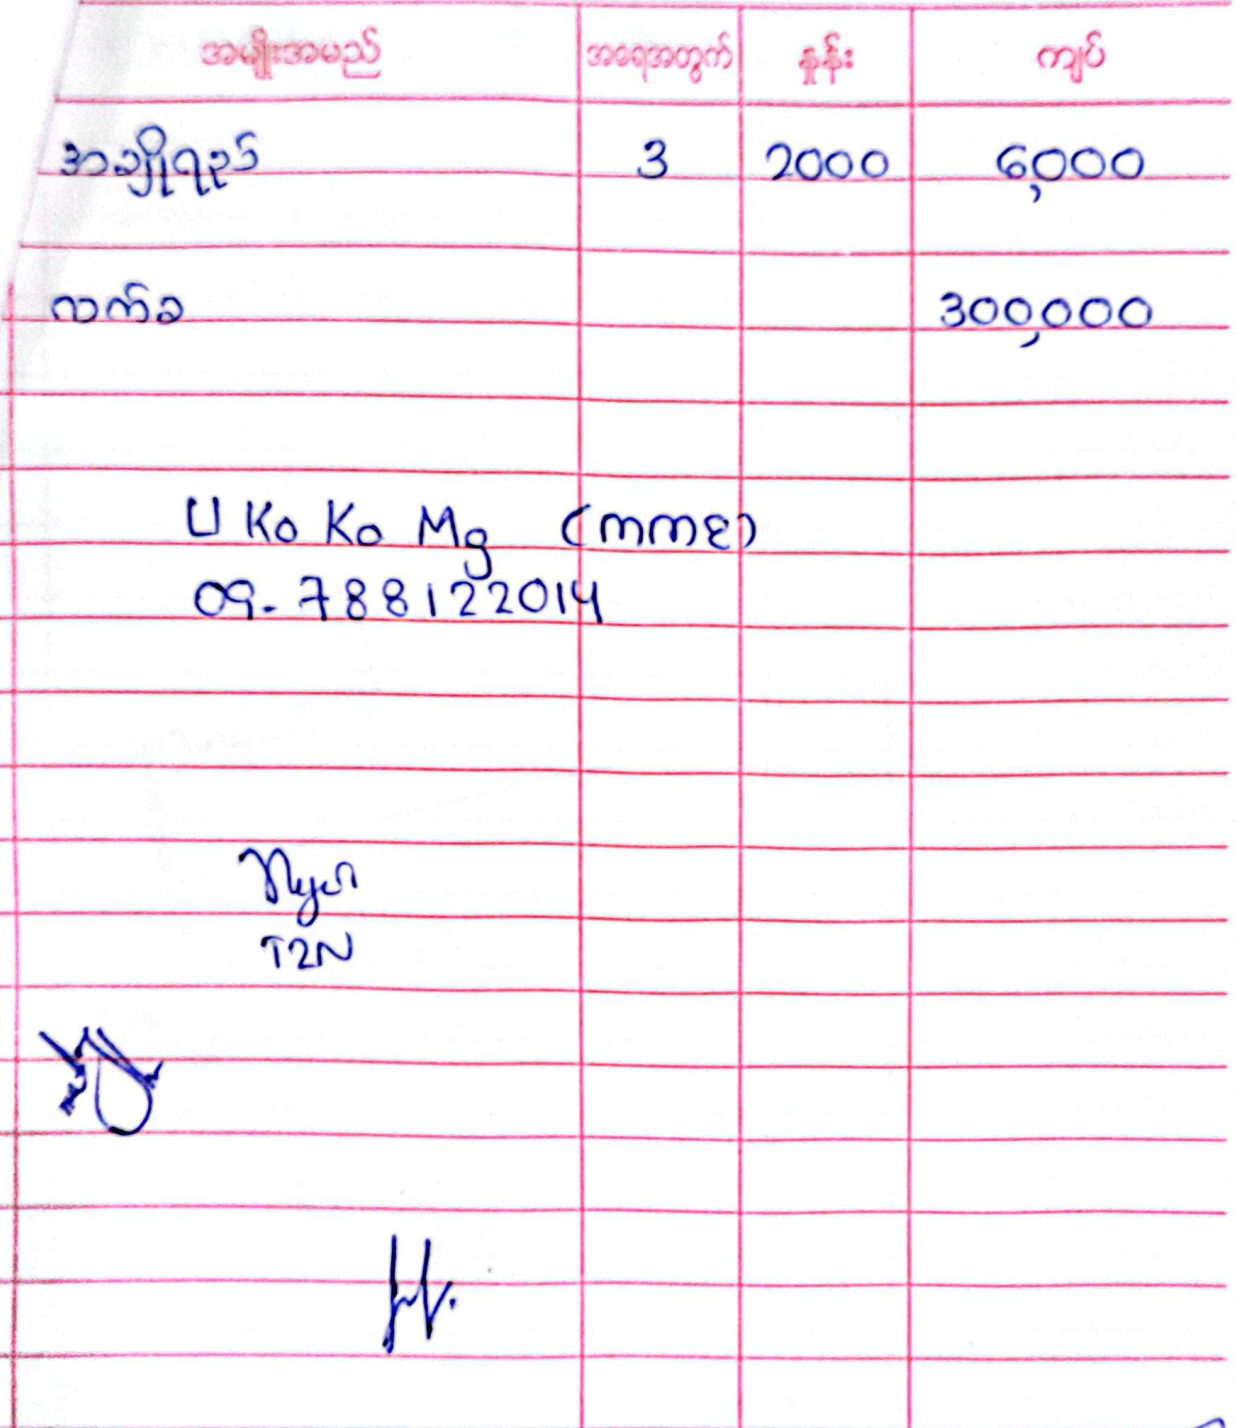 အမျိုးအမည် အရေအတွက် နှုန်း ကျပ်
အချိုရည် 3 2000 6,000
လက်ခ 300,000
U Ko Ko Mg (ကကစ)
09-788122014
T2N